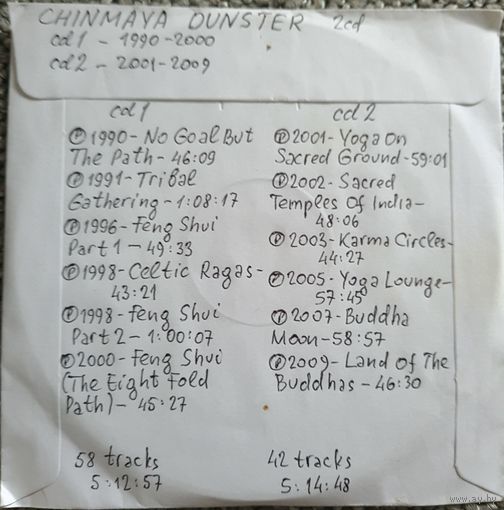 CHINMAYA DUNSTER 2cd
cd1 - 1990-2000
cd2 - 2001-2009
cd1
℗1990-No Goal But
The Path-46:09
℗1991-Tribal
Gathering-1:08:17
℗1996-Feng Shui
Part 1-49:33
℗1998-Celtic Ragas-
43:21
℗1998-Feng Shui
Part 2-1:00:07
℗2000-Feng Shui
(The Eight Fold
Path)-45:27
58 tracks
5:12:57
cd2
℗2001-Yoga On
Sacred Ground-59:01
℗2002-Sacred
Temples Of India-
48:06
℗2003-Karma Circles-
44:27
℗2005-Yoga Lounge-
57:45
℗2007-Buddha
Moon-58:57
℗2009-Land Of The
Buddhas-46:30
42 tracks
5:14:48
www.ay.by